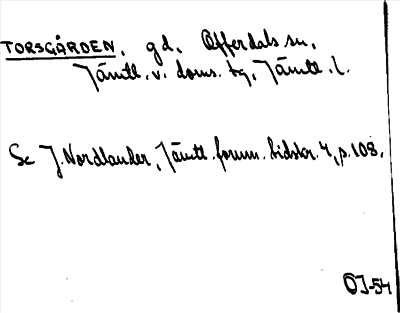 TORSGÅRDEN, gd, Offerdals sn,
Jämtl. v. doms. tg, Jämtl. l.
Se J. Nordlander, Jämtl. fornm. tidskr. 4, p. 108.
OJ-54